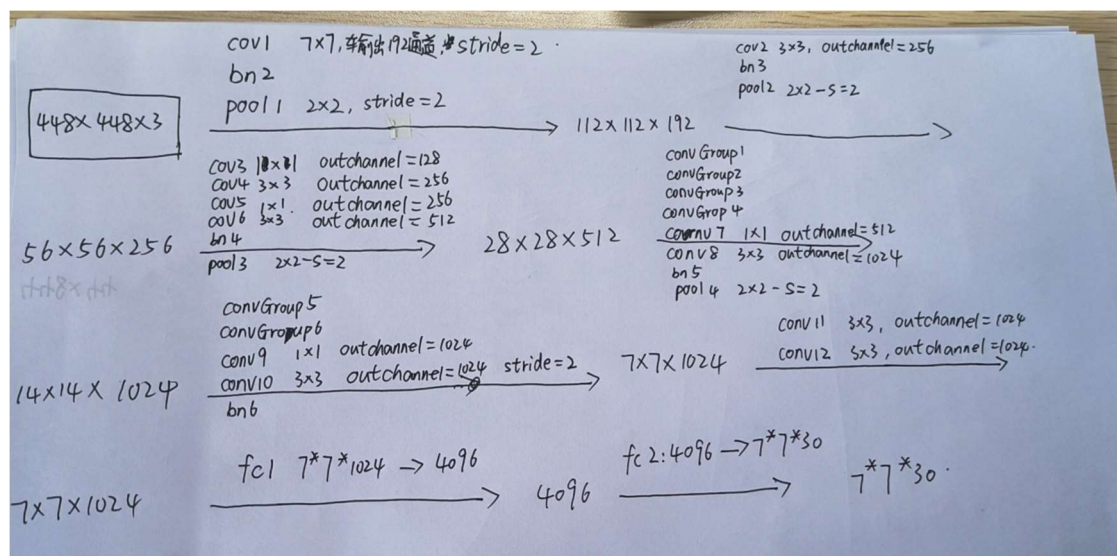 cov1 7×7, 输出192通道, stride=2
bn2
pool1 2×2, stride=2
448×448×3
112×112×192
cov2 3×3, outchannel=256
bn3
pool2 2×2-s=2
56×56×256
cov3 1×1 outchannel=128
cov4 3×3 outchannel=256
cov5 1×1. outchannel=256
cov6 3×3. outchannel=512
bn4
pool3 2×2-S=2
28×28×512
convGroup1
convGroup2
convGroup3
convGrop4
conv7 1×1 outchannel=512
conv8 3×3 outchannel=1024
bn5
pool4 2×2-S=2
14×14×1024
convGroup5
convGroup6
conv9 1×1 outchannel=1024
conv10 3×3 outchannel=1024 stride=2
bn6
7×7×1024
conv11 3×3, outchannel=1024
conv12 3×3, outchannel=1024.
7×7×1024
fc1 7*7*1024→4096
4096
fc2:4096→7*7*30
7*7*30.